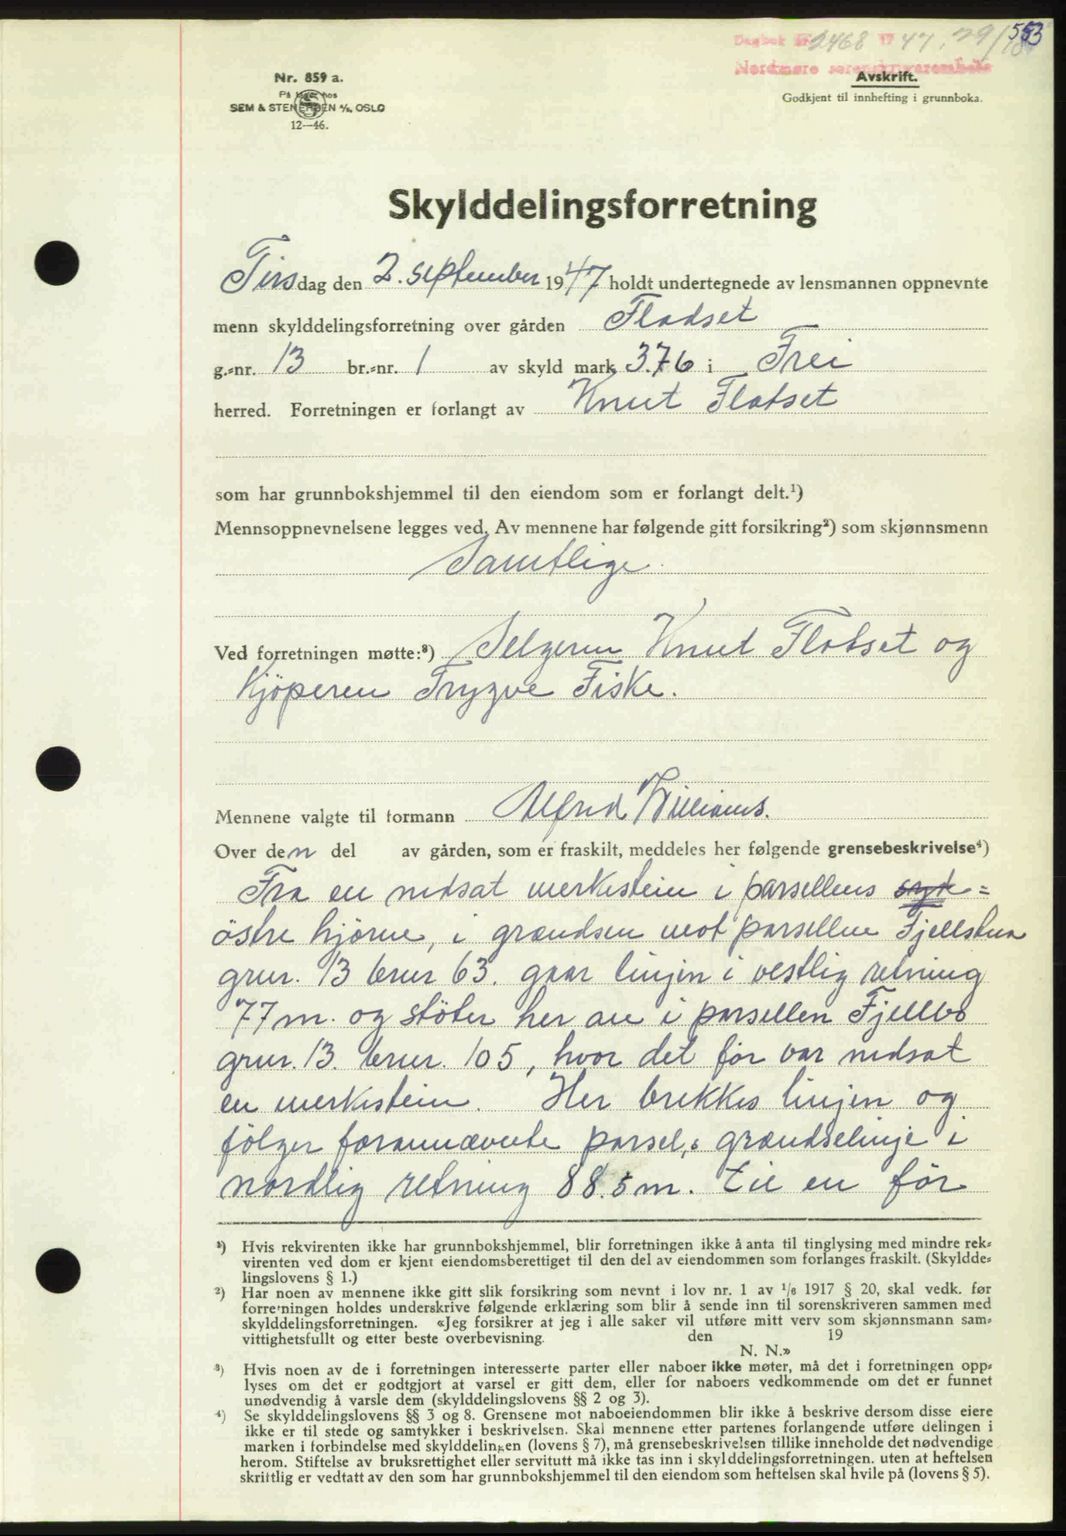 553
Dagbok nr. 2468 1947, 29/10
Nordmøre sorenskriverembete
Nr. 859 a.
På lager hos
SEM & STENERSEN A/S, OSLO
12—46.
Avskrift.
Godkjent til innhefting i grunnboka.
Skylddelingsforretning
Tirsdag den 2. september 1947 holdt undertegnede av lensmannen oppnevnte
menn skylddelingsforretning over gården Flatset
g.-nr. 13 br.-nr. 1 av skyld mark 3.76 i Frei
herred. Forretningen er forlangt av Knut Flatset
som har grunnbokshjemmel til den eiendom som er forlangt delt.¹)
Mennsoppnevnelsene legges ved. Av mennene har følgende gitt forsikring²) som skjønnsmenn
Samtlige.
Ved forretningen møtte:³) Selgeren Knut Flatset og
kjöperen Trygve Fiske.
Mennene valgte til formann Alfred Williams.
Over den del av gården, som er fraskilt, meddeles her følgende grensebeskrivelse⁴)
Fra en nedsat merkestein i parsellens syd=
östre hjörne, i grændsen mot parsellen Fjellstua
grnr. 13 brnr 63. gaar linjen i vestlig retning
77 m. og stöter her an i parsellen Fjellbo
grnr. 13. brnr. 105, hvor det för var nedsat
en merkestein. Her brekkes linjen og
fölger forannævnte parsels grændselinje i
nordlig retning 88.5 m. til en för
¹) Hvis rekvirenten ikke har grunnbokshjemmel, blir forretningen ikke å anta til tinglysing med mindre rek-
virenten ved dom er kjent eiendomsberettiget til den del av eiendommen som forlanges fraskilt. (Skyldde-
lingslovens § 1.)
²) Har noen av mennene ikke gitt slik forsikring som nevnt i lov nr. 1 av 1/6 1917 § 20, skal vedk. før
forretningen holdes underskrive følgende erklæring som blir å sende inn til sorenskriveren sammen med
skylddelingsforretningen. «Jeg forsikrer at jeg i alle saker vil utføre mitt verv som skjønnsmann sam-
vittighetsfullt og etter beste overbevisning. den 19
N. N.»
³) Hvis noen av de i forretningen interesserte parter eller naboer ikke møter, må det i forretningen opp-
lyses om det er godtgjort at varsel er gitt dem, eller for naboers vedkommende om det er funnet
unødvendig å varsle dem (skylddelingslovens §§ 2 og 3).
⁴) Se skylddelingslovens §§ 3 og 8. Grensene mot naboeiendommen blir ikke å beskrive dersom disse eiere
ikke er til stede og samtykker i beskrivelsen. Skal mennene etter partenes forlangende utføre delingen i
marken i forbindelse med skylddelingen (lovens § 7), må grensebeskrivelsen tillike inneholde det nødvendige
herom. Stiftelse av bruksrettighet eller servitutt må ikke tas inn i skylddelingsforretningen. uten at heftelsen
skriftlig er vedtatt av den som har grunnbokshjemmel til den eiendom som heftelsen skal hvile på (lovens § 5).